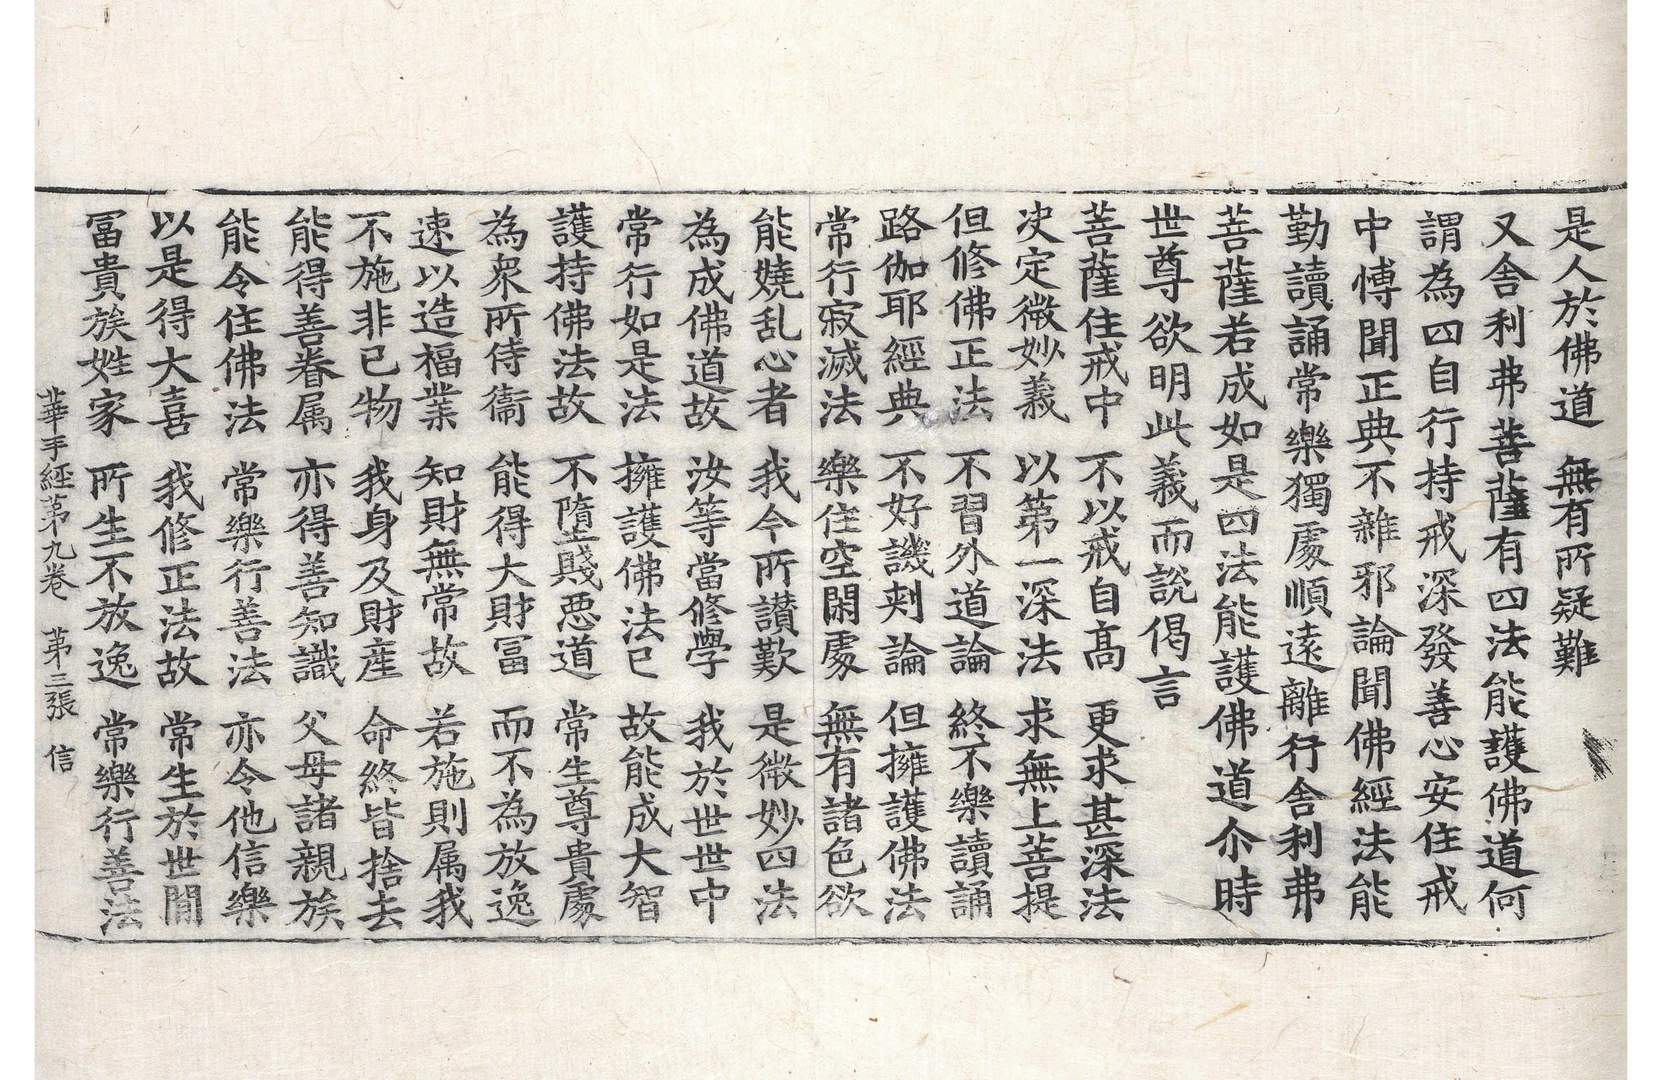 是人於佛道　無有所疑難
又舍利弗菩薩有四法能護佛道何
謂為四自行持戒深發善心安住戒
中愽聞正典不雜邪論聞佛經法能
勤讀誦常樂獨處順遠離行舍利弗
菩薩若成如是四法能護佛道尒時
世尊欲明此義而說偈言
菩薩住戒中　不以戒自高　更求甚深法
決定微妙義　以第一深法　求無上菩提
但修佛正法　不習外道論　終不樂讀誦
路伽耶經典　不好譏刾論　但擁護佛法
常行寂滅法　樂住空閑處　無有諸色欲
能嬈乱心者　我今所讃歎　是微妙四法
為成佛道故　汝等當修學　我於世世中
常行如是法　擁護佛法已　故能成大智
護持佛法故　不墮賤惡道　常生尊貴處
為衆所侍衞　能得大財冨　而不為放逸
速以造福業　知財無常故　若施則属我
不施非已物　我身及財産　命終皆捨去
能得善眷属　亦得善知識　父母諸親族
能令住佛法　常樂行善法　亦令他信樂
以是得大喜　我修正法故　常生於世間
冨貴族姓家　所生不放逸　常樂行善法
華手經第九卷　第三張　信